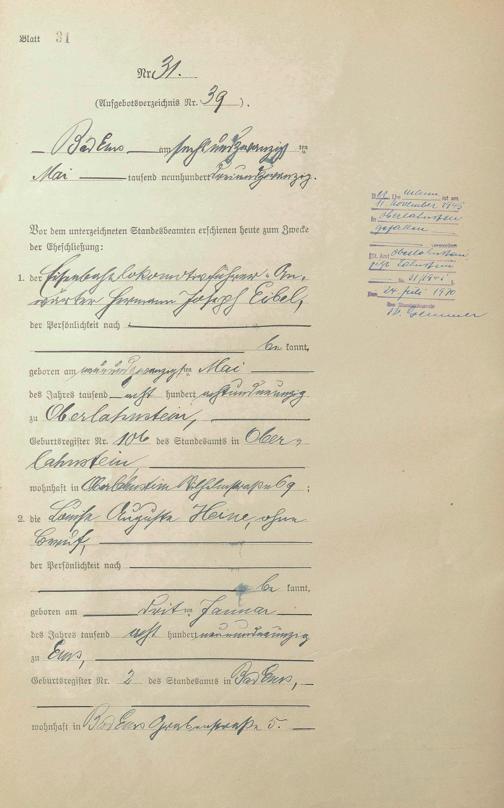 Blatt 31
Nr. 31.
(Aufgebotsverzeichnis Nr. 39 ).
Bad Ems am sechsundzwanzig ten
Mai tausend neunhundert dreiundzwanzig.
Vor dem unterzeichneten Standesbeamten erschienen heute zum Zwecke
der Eheschließung:
1. der Eisenbahnlokomotivführer-An-
wärter Hermann Joseph Eibel,
der Persönlichkeit nach
be kannt,
geboren am neunundzwanzigsten Mai
des Jahres tausend acht hundert achtundneunzig
zu Oberlahnstein,
Geburtsregister Nr. 106 des Standesamts in Ober-
lahnstein,
wohnhaft in Oberlahnstein Wilhelmstraße 69 ;
2. die Louise Auguste Heine, ohne
Beruf,
der Persönlichkeit nach
be kannt,
geboren am dritten Januar
des Jahres tausend acht hundert neunundneunzig
zu Ems,
Geburtsregister Nr. 2 des Standesamts in Bad Ems,
wohnhaft in Bad Ems Grabenstraße 5.
ist am
11. November 1945
in Oberlahnstein
St. Amt Oberlahnstein
Lahnstein
Nr.
Ems, 24. Juli 1970
Der Standesbeamte